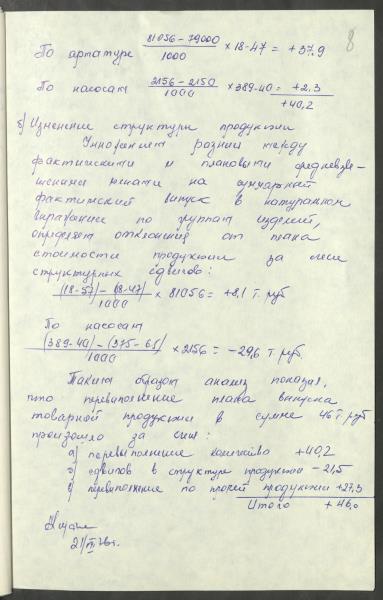 8
81056 – 79000
По арматуре ––––– × 18-47 = +37,9
1000
2156 – 2150
По насосам ––––– × 389-40 = +2,3
1000
+40,2
б) Изменение структуры продукции
Умножением разниц между
фактическими и плановыми средневзве-
шенными ценами на суммарный
фактический выпуск в натуральном
выражении по группам изделий,
определяем отклонения от плана
стоимости продукции за счет
структурных сдвигов:
(18-57) – (18-47)
––––– × 81056 = +8,1 т. руб
1000
По насосам
(389-40) – (375-65)
––––– × 2156 = –29,6 т. руб.
1000
Таким образом анализ показал,
что перевыполнение плана выпуска
товарной продукции в сумме 46 т. руб
произошло за счет:
а) перевыполнение количества +40,2
б) сдвигов в структуре продукции –21,5
в) перевыполнение по прочей продукции +27,3
Итого +46,0